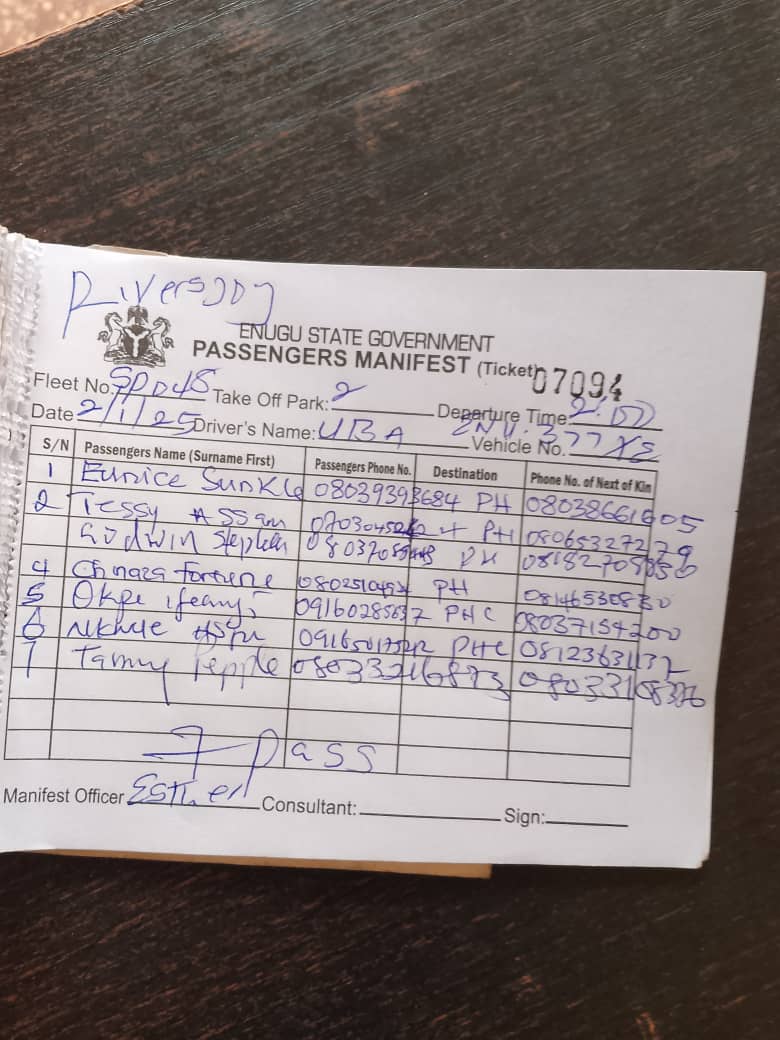 Rivers JDJ
ENUGU STATE GOVERNMENT
PASSENGERS MANIFEST (Ticket) 07094
Fleet No. SPD48 Take Off Park: 2 Departure Time: 2:00
Date 2/1/25 Driver's Name: UBA Vehicle No. 377 XE
S/N Passengers Name (Surname First) Passengers Phone No. Destination Phone No. of Next of Kin
1 Eunice Sunkle 08039393684 PH 08038661605
2 Tessy Assam PH 08065327279
Godwin Stephen PH
4 Chinaza Fortune PH 08146530830
5 Okpe ifeanyi 09160285637 PHC 08037154200
6 PHC 08123631132
7 Tammy Pepple 08033216873
7 pass
Manifest Officer Esther Consultant: Sign: